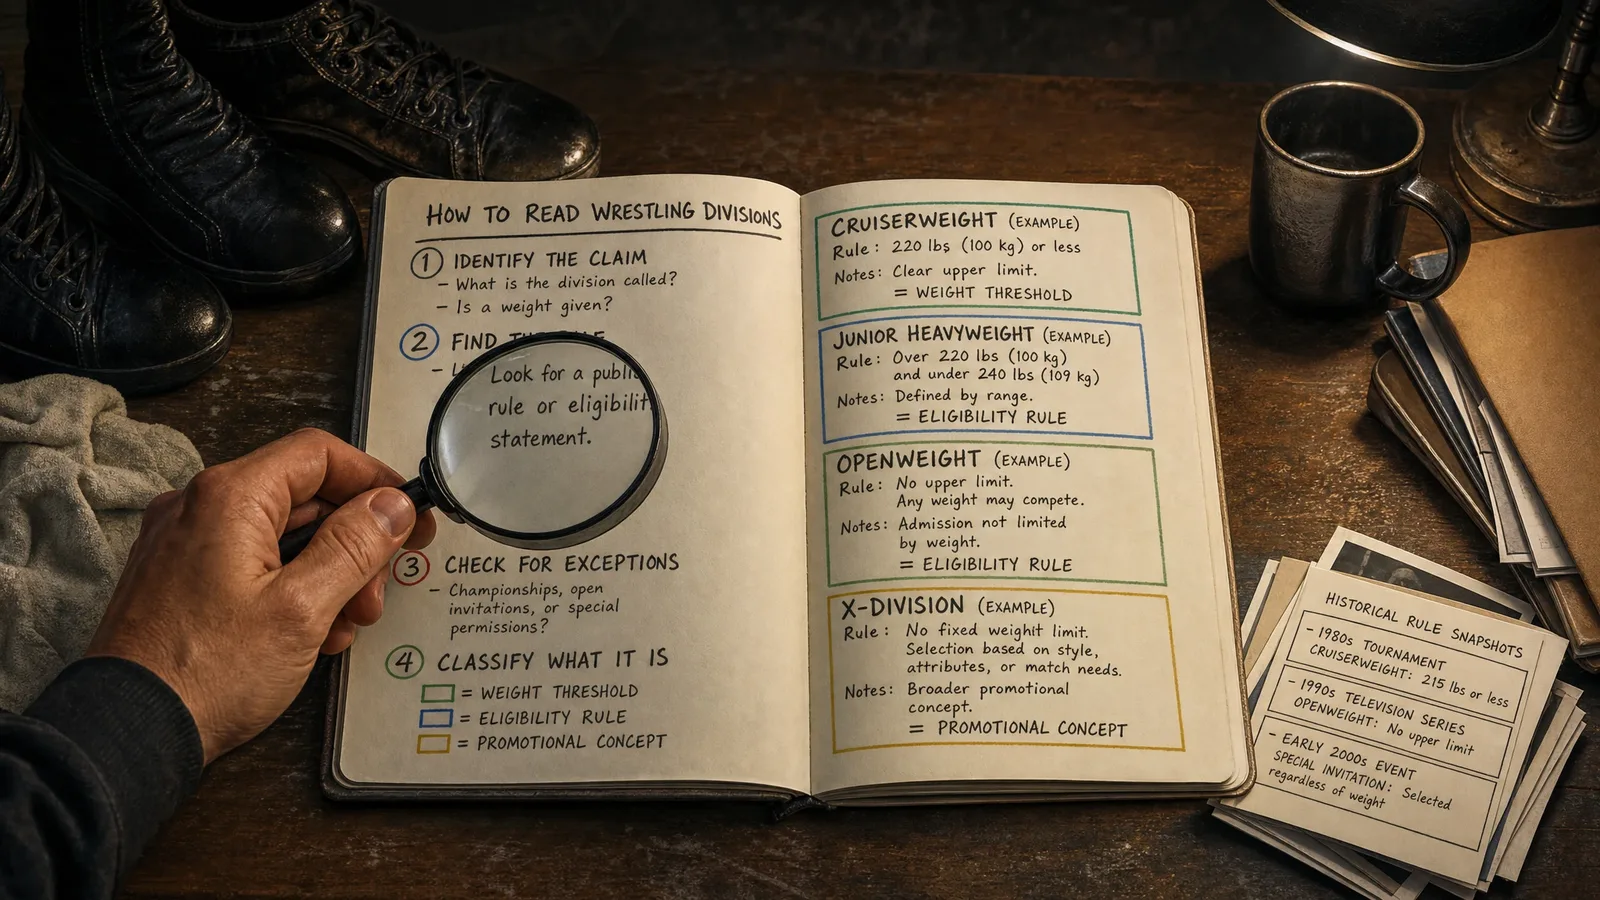 HOW TO READ WRESTLING DIVISIONS
1 IDENTIFY THE CLAIM
- What is the division called?
- Is a weight given?
2 FIND
-
Look for a public
rule or eligibilit
statement.
3 CHECK FOR EXCEPTIONS
- Championships, open
invitations, or special
permissions?
4 CLASSIFY WHAT IT IS
= WEIGHT THRESHOLD
= ELIGIBILITY RULE
= PROMOTIONAL CONCEPT
CRUISERWEIGHT (EXAMPLE)
Rule: 220 lbs (100 kg) or less
Notes: Clear upper limit.
= WEIGHT THRESHOLD
JUNIOR HEAVYWEIGHT (EXAMPLE)
Rule: Over 220 lbs (100 kg)
and under 240 lbs (109 kg)
Notes: Defined by range.
= ELIGIBILITY RULE
OPENWEIGHT (EXAMPLE)
Rule: No upper limit.
Any weight may compete.
Notes: Admission not limited
by weight.
= ELIGIBILITY RULE
X-DIVISION (EXAMPLE)
Rule: No fixed weight limit.
Selection based on style,
attributes, or match needs.
Notes: Broader promotional
concept.
= PROMOTIONAL CONCEPT
HISTORICAL RULE SNAPSHOTS
- 1980s TOURNAMENT
CRUISERWEIGHT: 215 lbs or less
- 1990s TELEVISION SERIES
OPENWEIGHT: No upper limit
- EARLY 2000s EVENT
SPECIAL INVITATION: Selected
regardless of weight